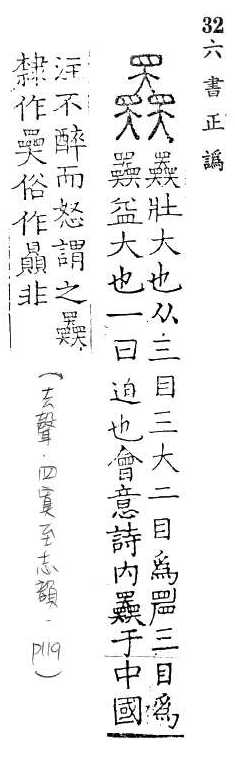 32 六書正譌
𡚤壯大也从三目三大二目爲䀠三目爲
𡚤益大也一曰迫也會意詩內𡚤于中國
注不醉而怒謂之𡚤
隸作奰俗作贔非
(去聲.四寘至志韻.P119)